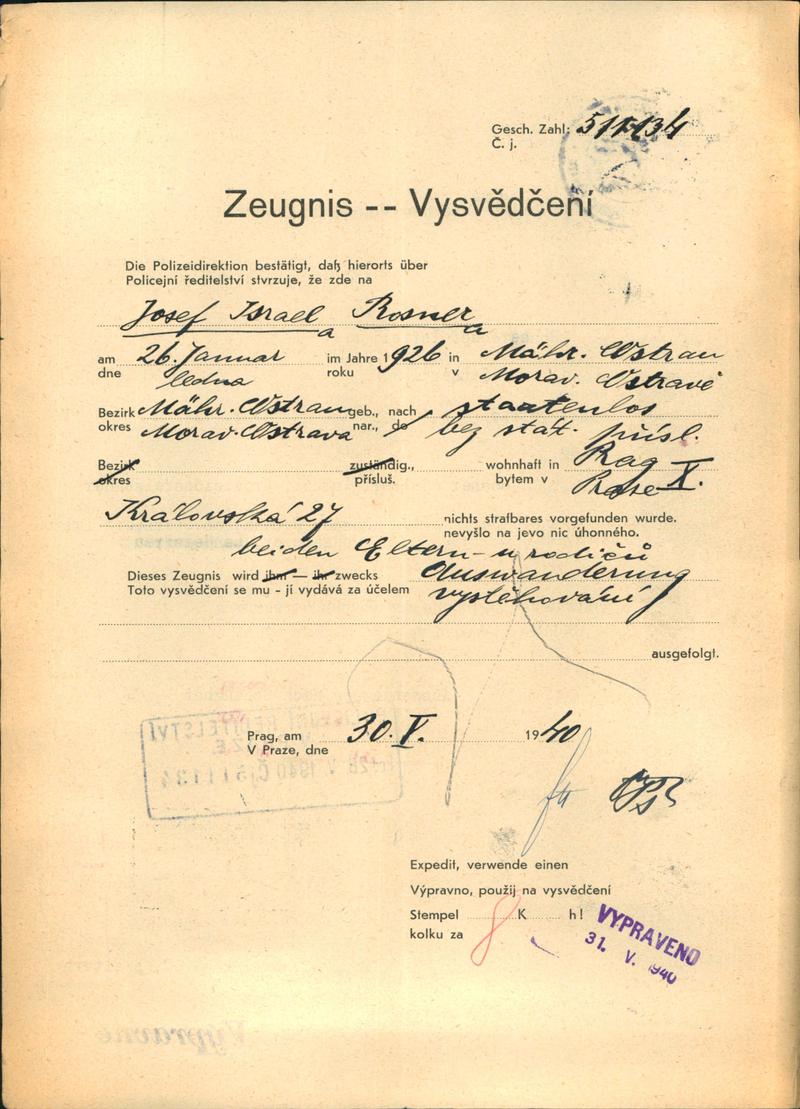 Gesch. Zahl: 511134
Č. j.
Zeugnis -- Vysvědčení
Die Polizeidirektion bestätigt, daß hierorts über
Policejní ředitelství stvrzuje, že zde na
Josef Israel Rosner
a a
am 26. Januar im Jahre 1926 in Mähr. Ostrau
dne ledna roku v Morav. Ostravě
Bezirk Mähr. Ostrau geb., nach staatenlos
okres Morav. Ostrava nar., do bez stát. přísl.
Bezirk zuständig., wohnhaft in Prag X.
okres přísluš. bytem v Praze
Královská 27 nichts strafbares vorgefunden wurde.
nevyšlo na jevo nic úhonného.
beiden Eltern - u rodičů
Dieses Zeugnis wird ihm — ihr zwecks Auswanderung
Toto vysvědčení se mu - jí vydává za účelem vystěhování
ausgefolgt.
Prag, am 30. V. 1940
V Praze, dne
Expedit, verwende einen
Výpravno, použij na vysvědčení
Stempel 8 K h!
kolku za
VYPRAVENO
31. V. 1940